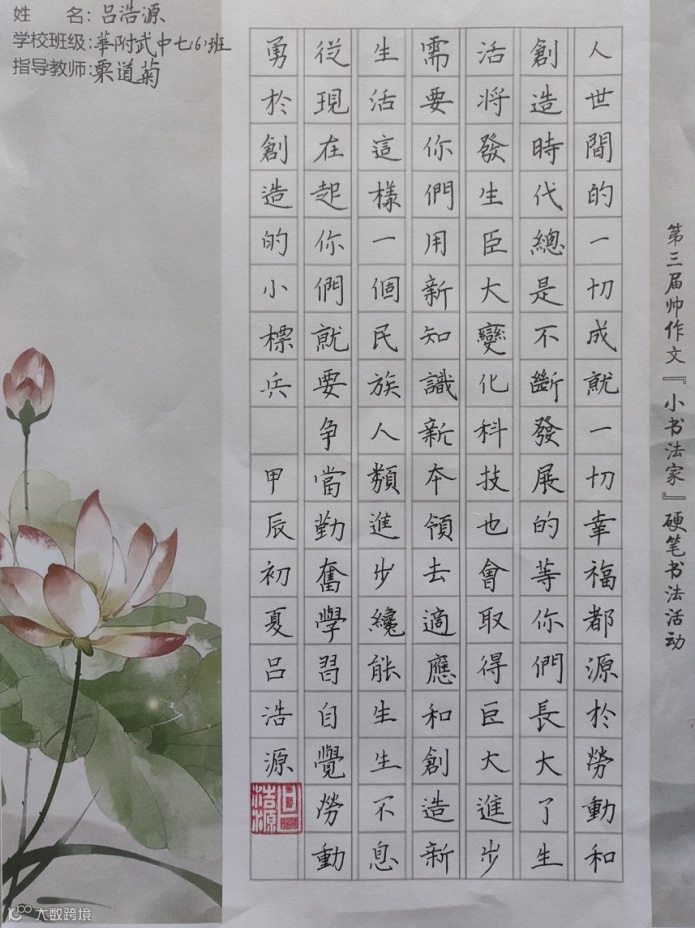 姓　　名：吕浩源
学校班级：華附武中七(6)班
指导教师：栗道菊
第三届帅作文『小书法家』硬笔书法活动
人世間的一切成就一切幸福都源於勞動和
創造時代總是不斷發展的等你們長大了生
活将發生臣大變化科技也會取得巨大進步
需要你們用新知識新本領去適應和創造新
生活這樣一個民族人類進步纔能生生不息
從現在起你們就要争當勤奮學習自覺勞動
勇於創造的小標兵　甲辰初夏吕浩源
吕浩源
大数跨境